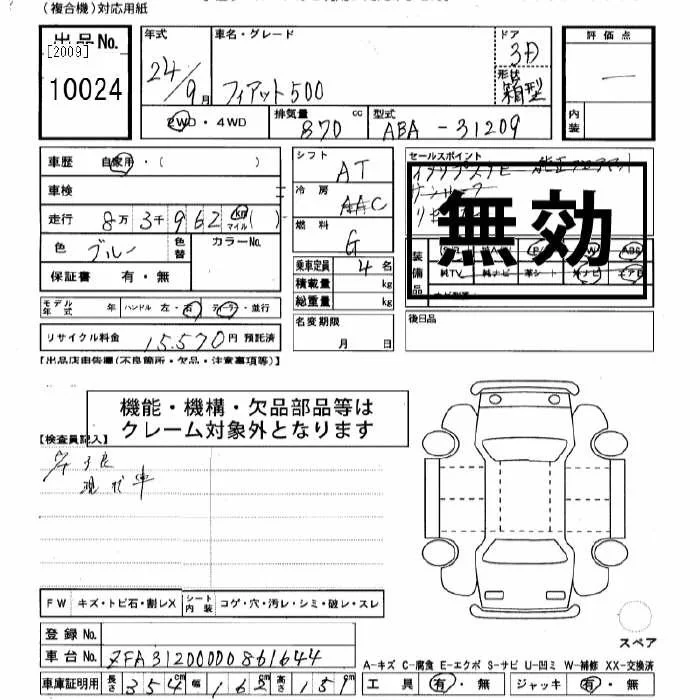 (複合機)対応用紙
出品No.
[2009]
10024
年式
24/9月
車名・グレード
フィアット500
ドア
3D
形状
箱型
評価点
—
内装
2WD・4WD
排気量
870
cc
型式
ABA-31209
車歴
自家用・( )
車検
走行
8万3千962
km
マイル
( )
色
ブルー
色替
カラーNo.
保証書 有・無
モデル年式
年
ハンドル 左・右
ディーラ・並行
リサイクル料金
15.570
円 預託済
シフト
AT
冷房
AAC
燃料
G
乗車定員
4
名
積載量
kg
総重量
kg
名変期限
月 日
セールスポイント
無効
装備品
純TV
純ナビ
革シート
エアB
ABS
後日品
【出品店申告欄(不良箇所・欠品・注意事項等)】
機能・機構・欠品部品等は
クレーム対象外となります
【検査員記入】
現状車
FW
キズ・トビ石・割レX
シート内装
コゲ・穴・汚レ・シミ・破レ・スレ
登録No.
車台No.
ZFA31200000861644
車庫証明用
長さ
354cm
幅
162cm
高さ
151cm
スペア
A-キズ C-腐食 E-エクボ S-サビ U-凹ミ W-補修 XX-交換済
工具
有・無
ジャッキ
有・無